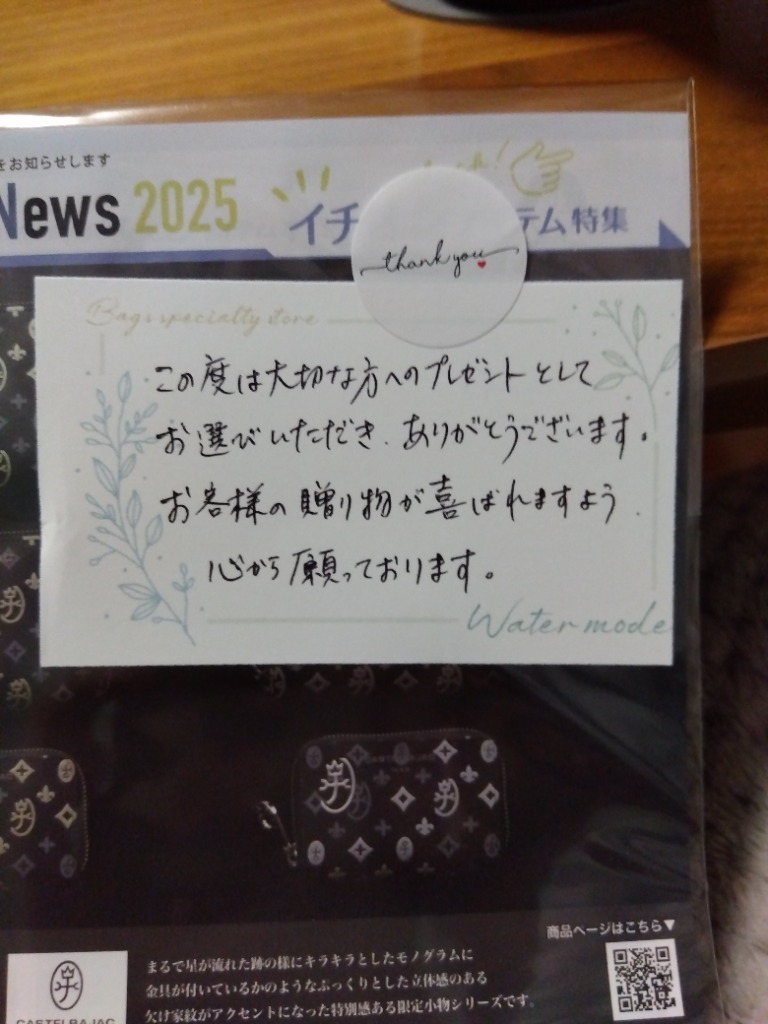 をお知らせします
News 2025
イチ
テム特集
thank you
Bags specialty store
この度は大切な方へのプレゼントとして
お選びいただき、ありがとうございます。
お客様の贈り物が喜ばれますよう
心から願っております。
Water mode
商品ページはこちら▼
まるで星が流れた跡の様にキラキラとしたモノグラムに
金具が付いているかのようなぷっくりとした立体感のある
欠け家紋がアクセントになった特別感ある限定小物シリーズです。
CASTELBAJAC